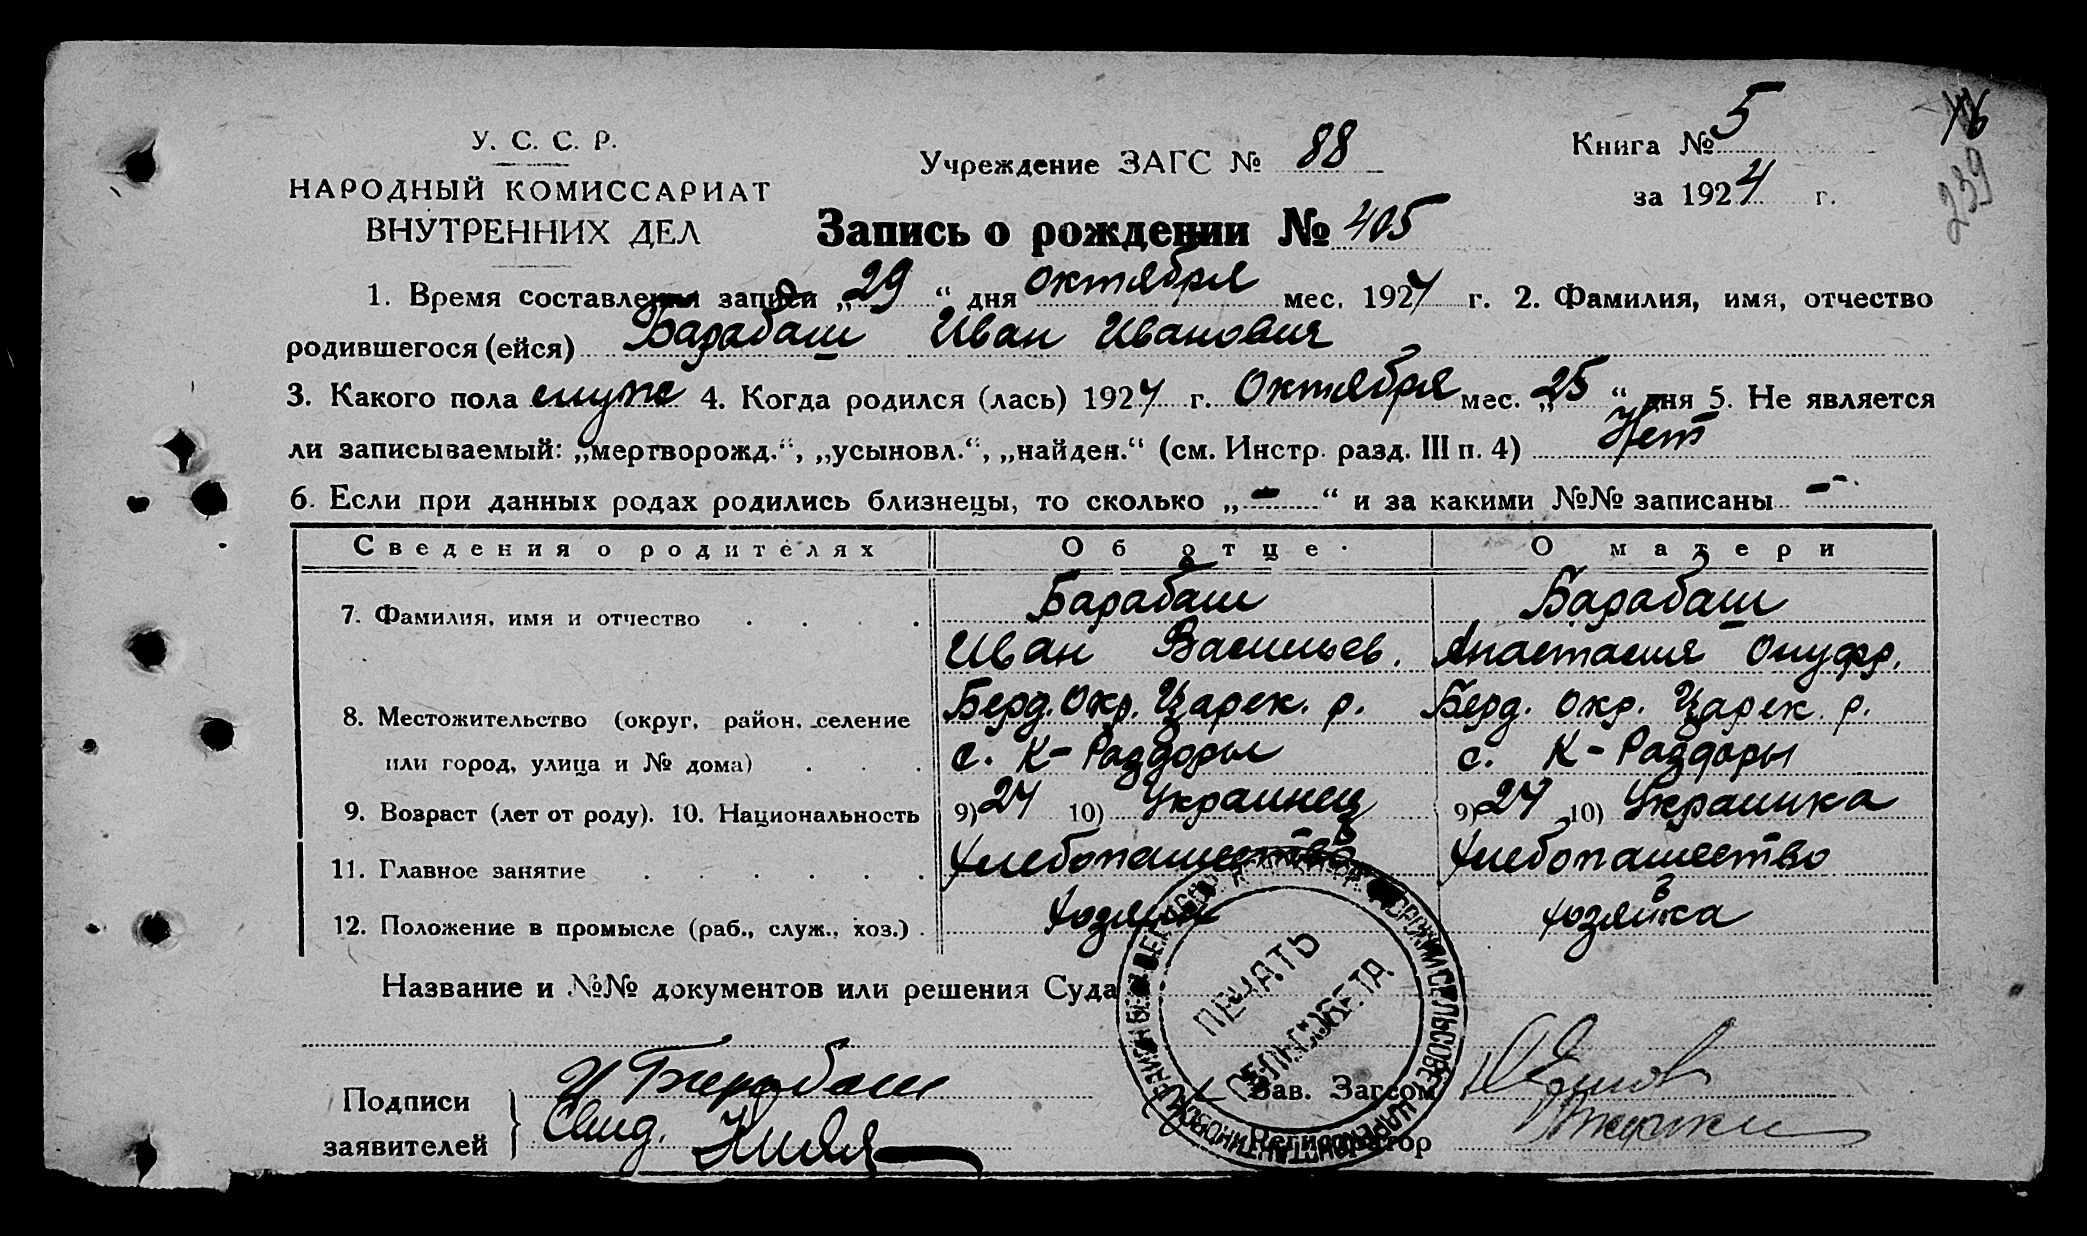 У. С. С. Р.
НАРОДНЫЙ КОМИССАРИАТ
ВНУТРЕННИХ ДЕЛ
Учреждение ЗАГС № 88
Книга № 5
за 1924 г.
239
Запись о рождении № 405
1. Время составления записи „29“ дня октября мес. 1924 г. 2. Фамилия, имя, отчество
родившегося (ейся) Барабаш Иван Иванович
3. Какого пола муж 4. Когда родился (лась) 1924 г. Октября мес. „25“ дня 5. Не является
ли записываемый: „мертворожд.“, „усыновл.“, „найден.“ (см. Инстр. разд. III п. 4) Нет
6. Если при данных родах родились близнецы, то сколько „–“ и за какими №№ записаны –
Сведения о родителях Об отце О матери
7. Фамилия, имя и отчество Барабаш Барабаш
Иван Васильев. Анастасия Онуфр.
8. Местожительство (округ, район, селение Берд. Окр. Царек. р. Берд. окр. Царек. р.
или город, улица и № дома) с. К-Раздоры с. К-Раздоры
9. Возраст (лет от роду). 10. Национальность 9) 24 10) Украинец 9) 24 10) Украинка
11. Главное занятие Хлебопашество Хлебопашество
12. Положение в промысле (раб., служ., хоз.) хозяин хозяйка
Название и №№ документов или решения Суда
ПЕЧАТЬ
СЕЛЬСОВЕТА
Подписи
заявителей
И Барабаш
Свид.
Зав. Загсом
Регистратор